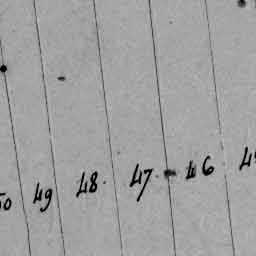 50 49 48. 47. 46 45